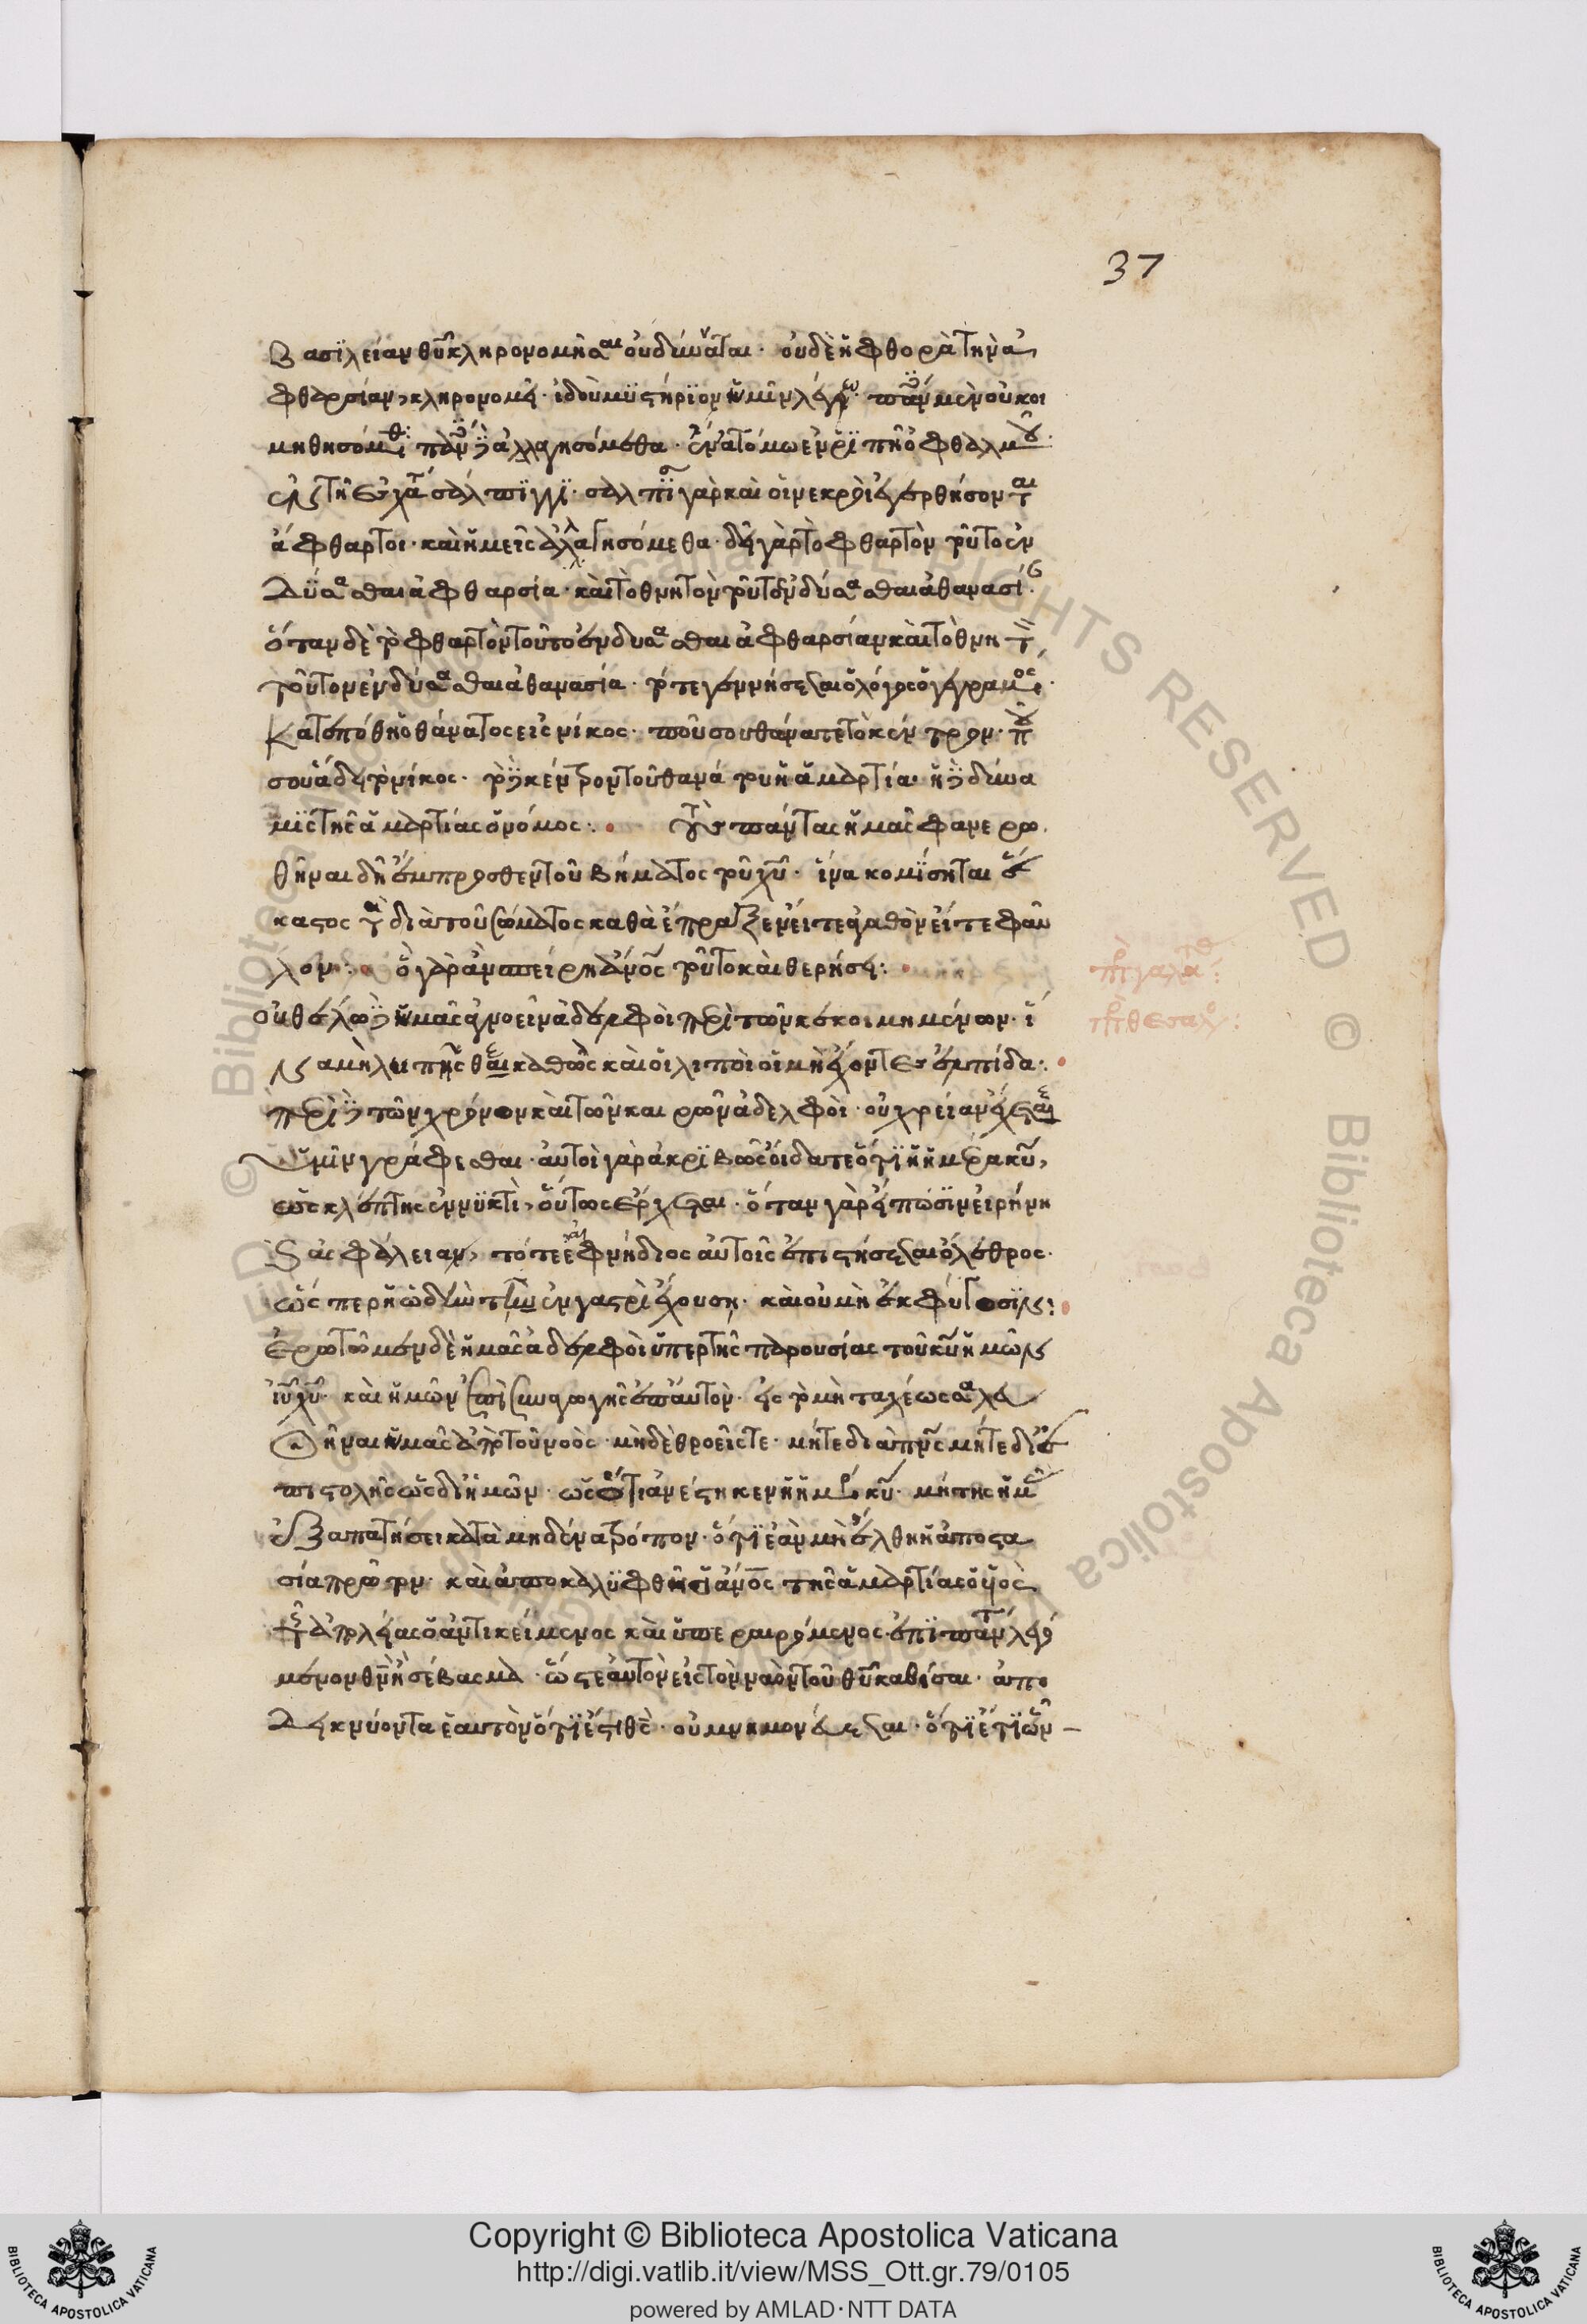 37
Βασϊλείαν θῡ κληρονομῆσαι οὐ δύναται· οὐδὲ ἡ φθορὰ τὴν ἀ
φθαρσίαν, κληρονομεῖ· ἰδοὺ μϋστήρϊον ὑμῖν λέγω· πάντες μὲν οὐ κοι
μηθησόμεθα· πάντες δὲ ἀλλαγησόμεθα· ἐν ἀτόμω ἐν ῥϊπῆ ὀφθαλμοῦ·
ἐν τῆ ἐσχάτη σάλπϊγγϊ· σαλπίσει γὰρ καὶ οἱ νεκροὶ ἐγερθήσονται
ἄφθαρτοι· καὶ ἡμεῖς ἀλλαγησόμεθα· δεῖ γὰρ τὸ φθαρτὸν τοῦτο ἐν
δΰσασθαι ἀφθαρσία· καὶ τὸ θνητὸν τοῦτο ἐνδύσασθαι ἀθανασία·
ὅταν δὲ τὸ φθαρτὸν τοῦτο ἐνδυσασθαι ἀφθαρσίαν καὶ τὸ θνητὸν
τοῦτον ἐνδύσασθαι ἀθανασία· τότε γεννήσεται ὁ λόγος ὁ γεγραμμένος·
Κατεπόθη ὁ θάνατος εἰς νίκος· ποῦ σου θάνατε τὸ κέντρον· ποῦ
σου ἅδη τὸ νίκος· τὸ δὲ κέντρον τοῦ θανάτου ἡ ἁμαρτία· ἡ δὲ δύνα
μϊς τῆς ἁμαρτίας ὁ νόμος:· τοὺς πάντας ἡμᾶς φανερω
θῆναι δῆ ἔμπροσθεν τοῦ βήματος τοῦ χῡ· ἵνα κομΐσηται ἕ
καστος τὰ διὰ τοῦ σώματος καθὰ ἔπραξεν εἴτε ἀγαθὸν εἴτε φαῦ
λον:· ὃ γὰρ ἂν σπείρη ἄνος τοῦτο καὶ θερήσει:·
οὐ θέλω δὲ ὑμᾶς ἀγνοεῖν ἀδελφοὶ περὶ τῶν κεκοιμημένων· ἵ
να μὴ λυπῆσθαι καθὼς καὶ οἱ λιποὶ οἱ μὴ ἔχοντες ἐλπίδα:·
περὶ δὲ τῶν χρόνων καὶ τῶν καιρῶν ἀδελφοὶ· οὐ χρείαν ἔχεται
ὑμῖν γράφεσθαι· αὐτοὶ γὰρ ἀκρϊβῶς οἴδατε ὅτϊ ἡ ἡμέρα κῡ,
ὡς κλέπτης ἐν νϋκτὶ, οὕτως ἔρχεται· ὅταν γὰρ εἴπωσϊν εἰρήνη
καὶ ἀσφάλειαν, τότε αἰφνήδιος αὐτοῖς ἐπιστήσεται ὄλεθρος·
ὥσπερ ἡ ὠδὺν τὴν ἐν γαστρὶ ἔχουση· καὶ οὐ μὴ ἐκφύγωσϊν:
Ἐρωτῶμεν δὲ ἡμᾶς ἀδελφοὶ ὑπερ τῆς παρουσίας τοῦ κῡ ἡμῶν
ἰῡ χῡ· καὶ ἡμῶν ἐπὶ συναγωγῆς ἐπ' αὐτόν· εἰς τὸ μὴ ταχέως σαλευ
θῆναι ὑμᾶς ἀπὸ τοῦ νοὸς· μὴδὲ θροεῖστε· μήτε διὰ πνς μήτε δι' ἐ
πιστολῆς ὡς δι' ἡμῶν· ὡς ὅτι ἀνέστηκεν ἡ ἡμέρα κῡ· μήτης ἡμᾶς
ἐξαπατήσει κατὰ μηδένα τρόπον· ὅτϊ ἐὰν μὴ ἔλθη ἡ ἀποστα
σία πρῶτον· καὶ ἀποκαλϋφθῆ ὁ ἄνος τῆς ἁμαρτίας ὁ υἱὸς
τῆς ἀπωλείας ὁ ἀντικείμενος καὶ ὑπεραιρόμενος ἐπϊ πάντα λεγό
μενον θν ἢ σέβασμα· ὥστε αὐτὸν εἰς τὸν ναὸν τοῦ θῡ καθίσαι· ἀπο
δεικνύοντα ἑαυτὸν ὅτϊ ἐστὶ θς· οὐ μνημονεύεται· ὅτϊ ἔτϊ ὢν –
πρ γαλα:
πρ θεσαλ:
Copyright © Biblioteca Apostolica Vaticana
http://digi.vatlib.it/view/MSS_Ott.gr.79/0105
powered by AMLAD·NTT DATA